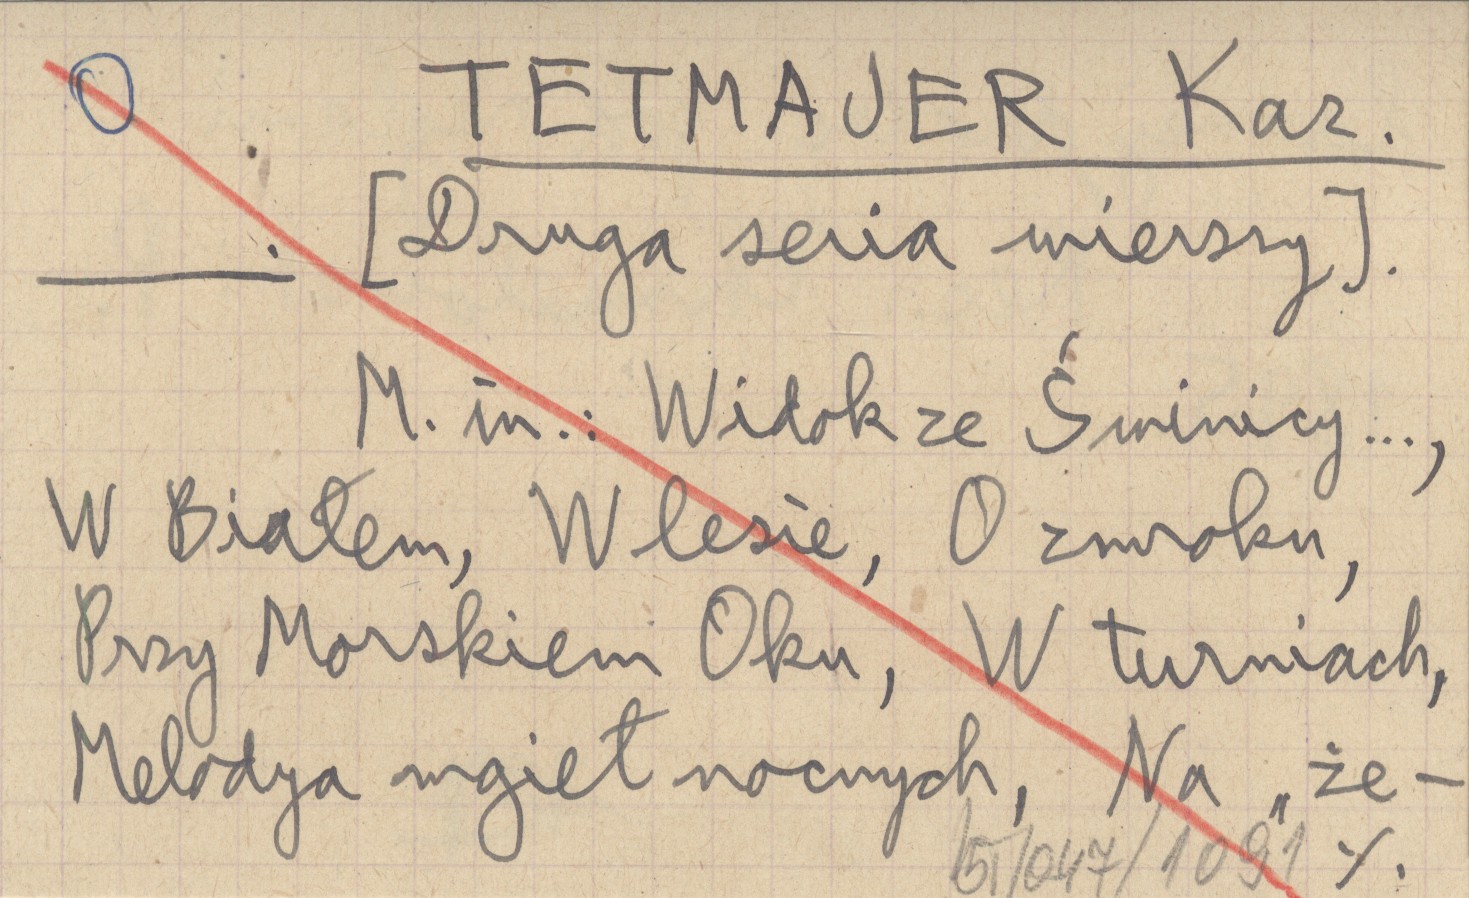 O TETMAJER Kaz.
______. [Druga seria wierszy].
M. in.: Widok ze Świnicy...,
W Białem, W lesie, O zmroku,
Przy Morskiem Oku, W turniach,
Melodya mgieł nocnych, Na „że-
/047/1091 ./.